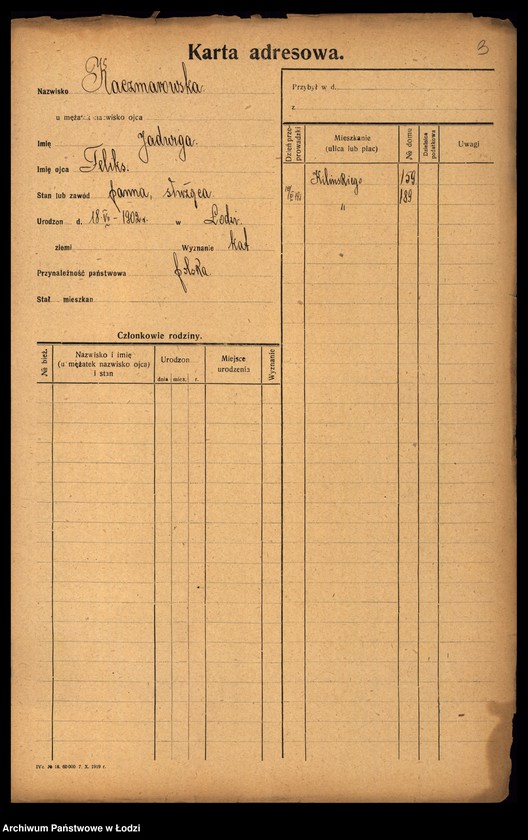 Karta adresowa.
3
Nazwisko Kaczmarowska
u mężatek nazwisko ojca
Imię Jadwiga.
Imię ojca Feliks.
Stan lub zawód panna,
Urodzon d. 18-VI-1902 r. w Łodzi
ziemi Wyznanie kat
Przynależność państwowa polska
Stał. mieszkan.
Członkowie rodziny.
№ bież.
Nazwisko i imię (u mężatek nazwisko ojca) i stan
Urodzon.
dnia mies. r.
Miejsce urodzenia
Wyznanie
Przybył w d.
z
Dzień przeprowadzki
Mieszkanie (ulica lub plac)
№ domu
Dzielnica podatkowa
Uwagi
Kilińskiego 159
" 189
60000 7. X. 1919 r.
Archiwum Państwowe w Łodzi